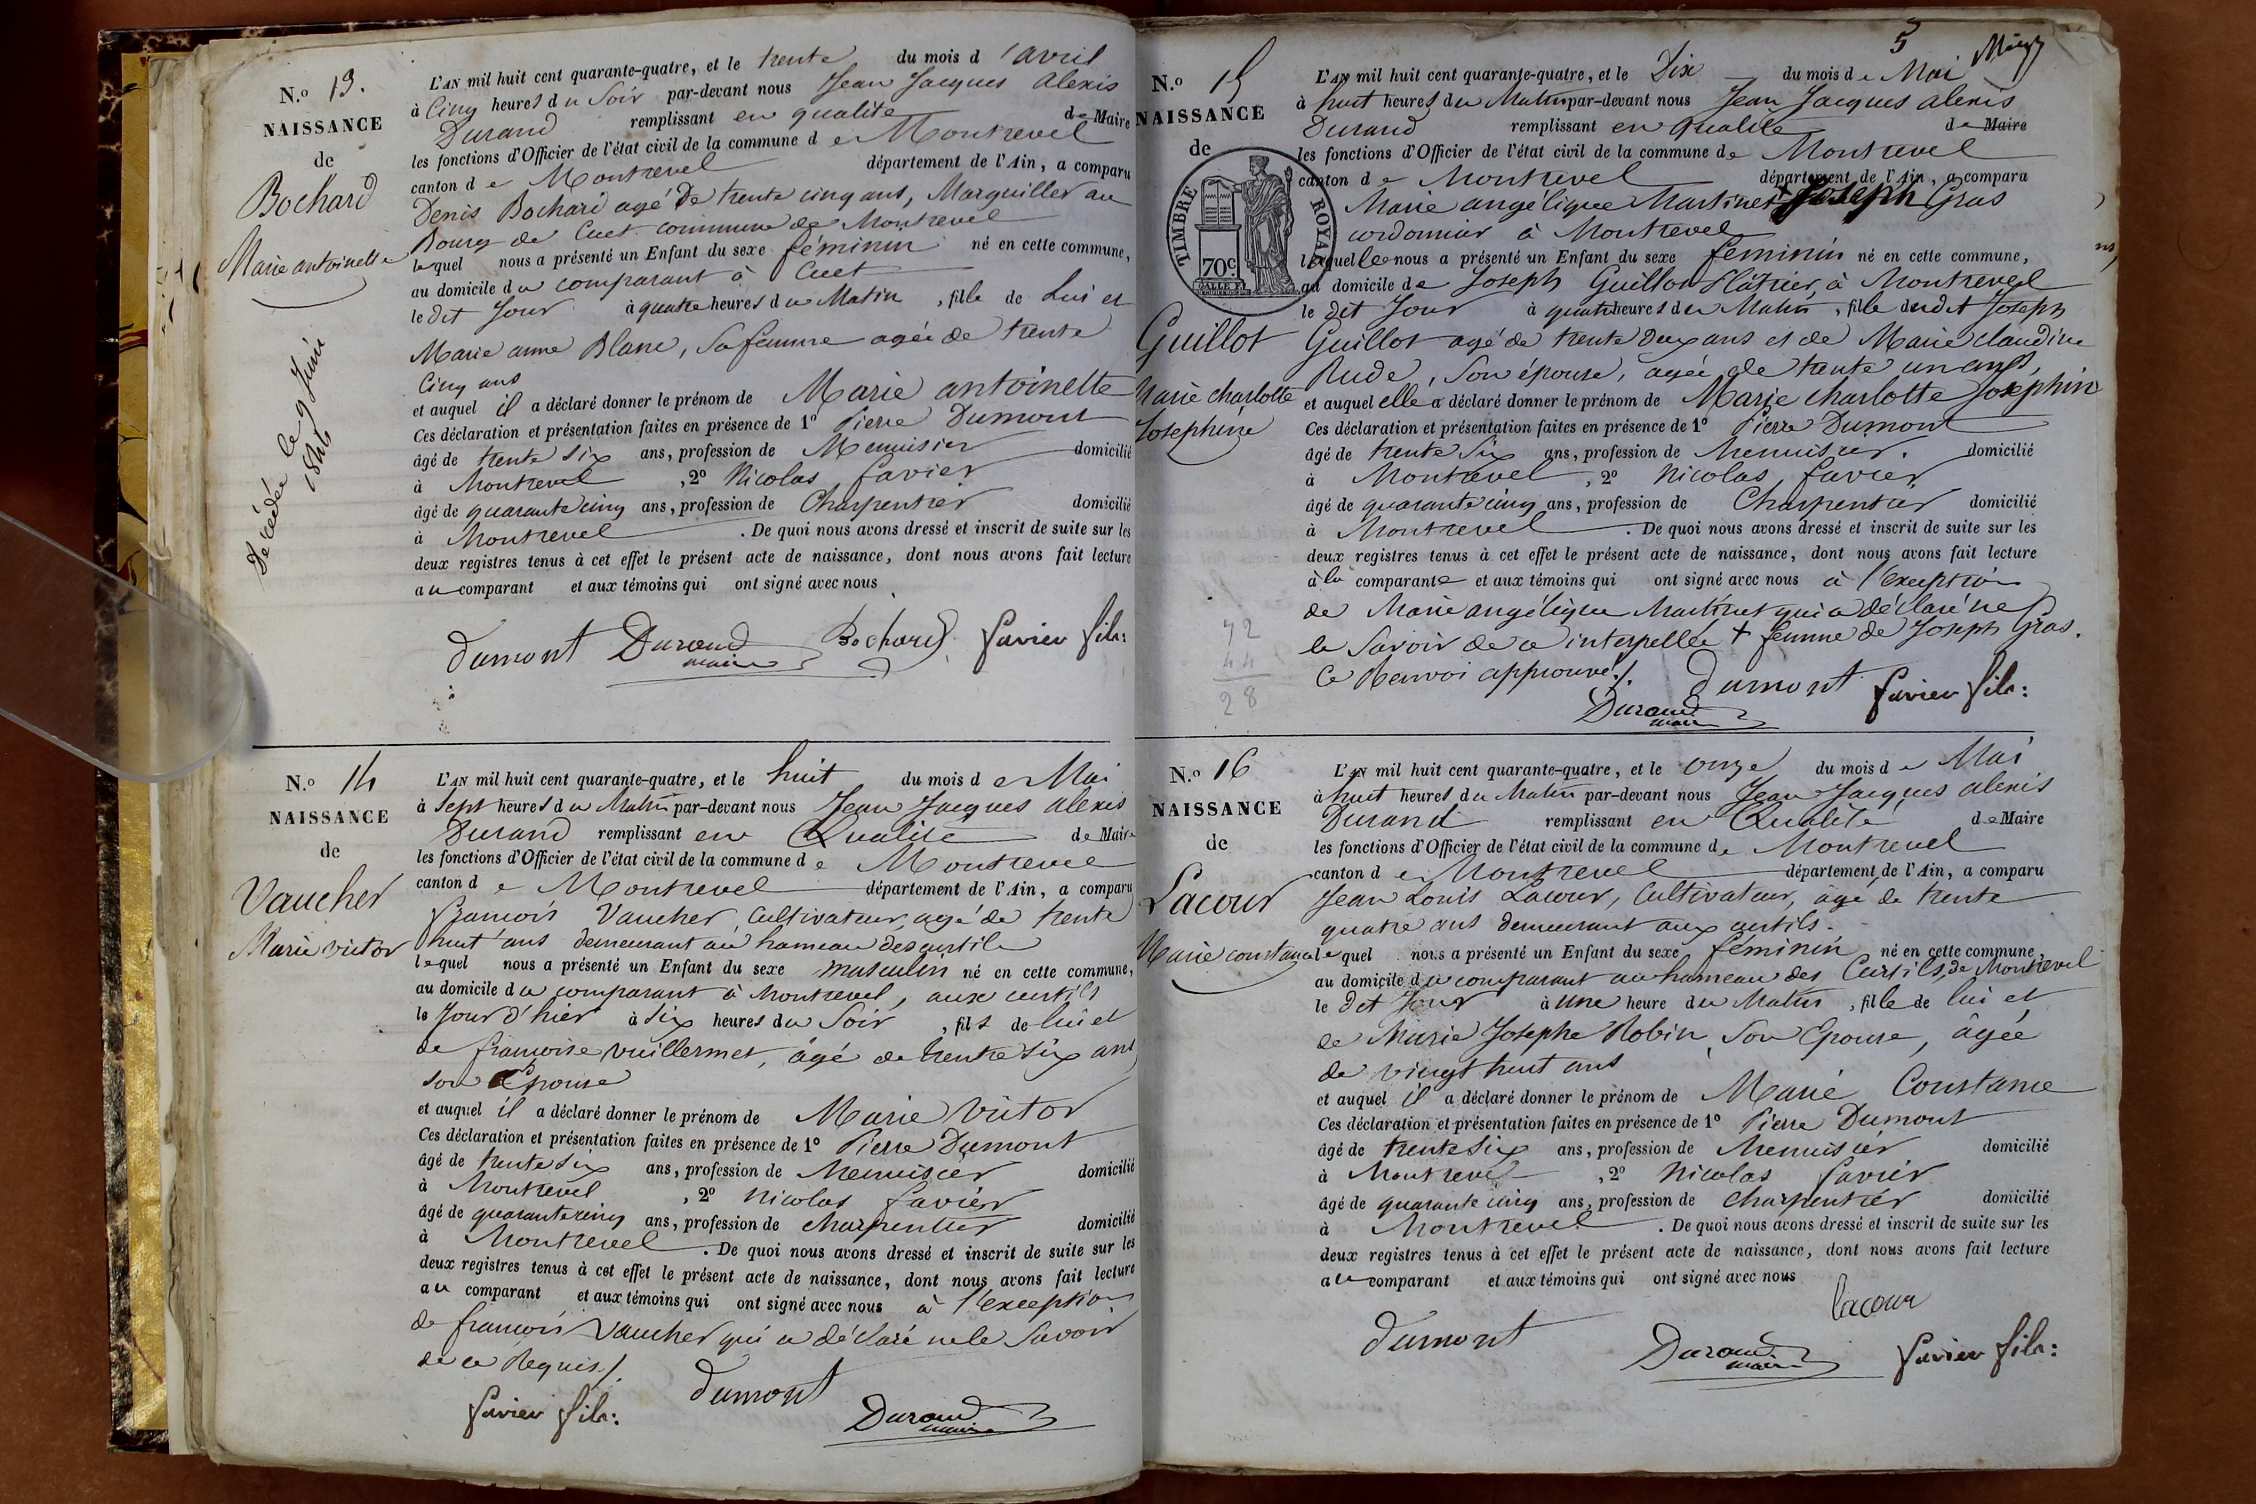 N.o 13.
NAISSANCE
de
Bochard
Marie antoinette
Décédée le 9 Juin
1844
L'AN mil huit cent quarante-quatre, et le trente du mois d'avril
à Cinq heures du Soir par-devant nous Jean Jacques Alexis
Durand remplissant en qualité de Maire
les fonctions d'Officier de l'état civil de la commune de Montrevel
canton de Montrevel département de l'Ain, a comparu
Denis Bochard agé de trente cinq ans, Marguiller au
Bourg de Cuet commune de Montrevel
lequel nous a présenté un Enfant du sexe féminin né en cette commune,
au domicile du comparant à Cuet
le dit Jour à quatre heures du Matin, fille de Lui et
Marie anne Blanc, Sa femme agée de trente
Cinq ans
et auquel il a déclaré donner le prénom de Marie antoinette
Ces déclaration et présentation faites en présence de 1o Pierre Dumont
âgé de trente six ans, profession de Menuisier domicilié
à Montrevel, 2o Nicolas favier
âgé de quarante cinq ans, profession de Charpentier domicilié
à Montrevel. De quoi nous avons dressé et inscrit de suite sur les
deux registres tenus à cet effet le présent acte de naissance, dont nous avons fait lecture
au comparant et aux témoins qui ont signé avec nous
Dumont Durand maire Bochard favier fils:
N.o 14
NAISSANCE
de
Vaucher
Marie victor
L'AN mil huit cent quarante-quatre, et le huit du mois de Mai
à Sept heures du Matin par-devant nous Jean Jacques Alexis
Durand remplissant en Qualité de Maire
les fonctions d'Officier de l'état civil de la commune de Montrevel
canton de Montrevel département de l'Ain, a comparu
François Vaucher, Cultivateur, agé de trente
huit ans demeurant au hameau des curtils
lequel nous a présenté un Enfant du sexe masculin né en cette commune,
au domicile du comparant à Montrevel, aux curtils
le Jour d'hier à Six heures du Soir, fils de lui et
de françoise vuillermet, âgé de trente six ans
son Epouse
et auquel il a déclaré donner le prénom de Marie Victor
Ces déclaration et présentation faites en présence de 1o Pierre Dumont
âgé de trente six ans, profession de Menuisier domicilié
à Montrevel, 2o Nicolas favier
âgé de quarante cinq ans, profession de charpentier domicilié
à Montrevel. De quoi nous avons dressé et inscrit de suite sur les
deux registres tenus à cet effet le présent acte de naissance, dont nous avons fait lecture
au comparant et aux témoins qui ont signé avec nous à l'exception
de françois Vaucher qui a déclaré ne le Savoir
de ce Requis./.
favier fils: Dumont Durand maire
5
N.o 15
NAISSANCE
de
TIMBRE ROYAL
70c
Guillot
Marie charlotte
Josephine
L'AN mil huit cent quarante-quatre, et le Dix du mois de Mai
à huit heures du Matin par-devant nous Jean Jacques alexis
Durand remplissant en Qualité de Maire
les fonctions d'Officier de l'état civil de la commune de Montrevel
canton de Montrevel département de l'Ain, a comparu
Marie angélique Martinet + Joseph Gras
cordonnier à Montrevel
laquelle nous a présenté un Enfant du sexe féminin né en cette commune,
au domicile de Joseph Guillot Plâtrier, à Montrevel
le dit Jour à quatre heures du Matin, fille dudit Joseph
Guillot agé de trente deux ans et de Marie claudine
Rude, Son épouse, agée de trente un ans,
et auquel elle a déclaré donner le prénom de Marie Charlotte Josephine
Ces déclaration et présentation faites en présence de 1o Pierre Dumont
âgé de trente Six ans, profession de Menuisier. domicilié
à Montrevel, 2o Nicolas favier
âgé de quarante cinq ans, profession de Charpentier domicilié
à Montrevel. De quoi nous avons dressé et inscrit de suite sur les
deux registres tenus à cet effet le présent acte de naissance, dont nous avons fait lecture
à la comparante et aux témoins qui ont signé avec nous à l'exception
de Marie angélique Martinet qui a déclaré ne
le Savoir de ce interpellée + femme de Joseph Gras.
Ce Renvoi approuvé./.
72
44
28
Dumont favier fils:
Durand maire
N.o 16
NAISSANCE
de
Lacour
Marie constance
L'AN mil huit cent quarante-quatre, et le onze du mois de Mai
à huit heures du Matin par-devant nous Jean Jacques alexis
Durand remplissant en Qualité de Maire
les fonctions d'Officier de l'état civil de la commune de Montrevel
canton de Montrevel département de l'Ain, a comparu
Jean Louis Lacour, Cultivateur, âgé de trente
quatre ans demeurant aux curtils.
lequel nous a présenté un Enfant du sexe féminin né en cette commune,
au domicile du comparant au hameau des Curtils, de Montrevel
le dit Jour à une heure du Matin, fille de lui et
de Marie Josephe Robin, Son Epouse, âgée
de vingt huit ans
et auquel il a déclaré donner le prénom de Marie Constance
Ces déclaration et présentation faites en présence de 1o Pierre Dumont
âgé de trente six ans, profession de Menuisier domicilié
à Montrevel, 2o Nicolas favier
âgé de quarante cinq ans, profession de charpentier domicilié
à Montrevel. De quoi nous avons dressé et inscrit de suite sur les
deux registres tenus à cet effet le présent acte de naissance, dont nous avons fait lecture
au comparant et aux témoins qui ont signé avec nous
lacour
Dumont Durand maire favier fils: